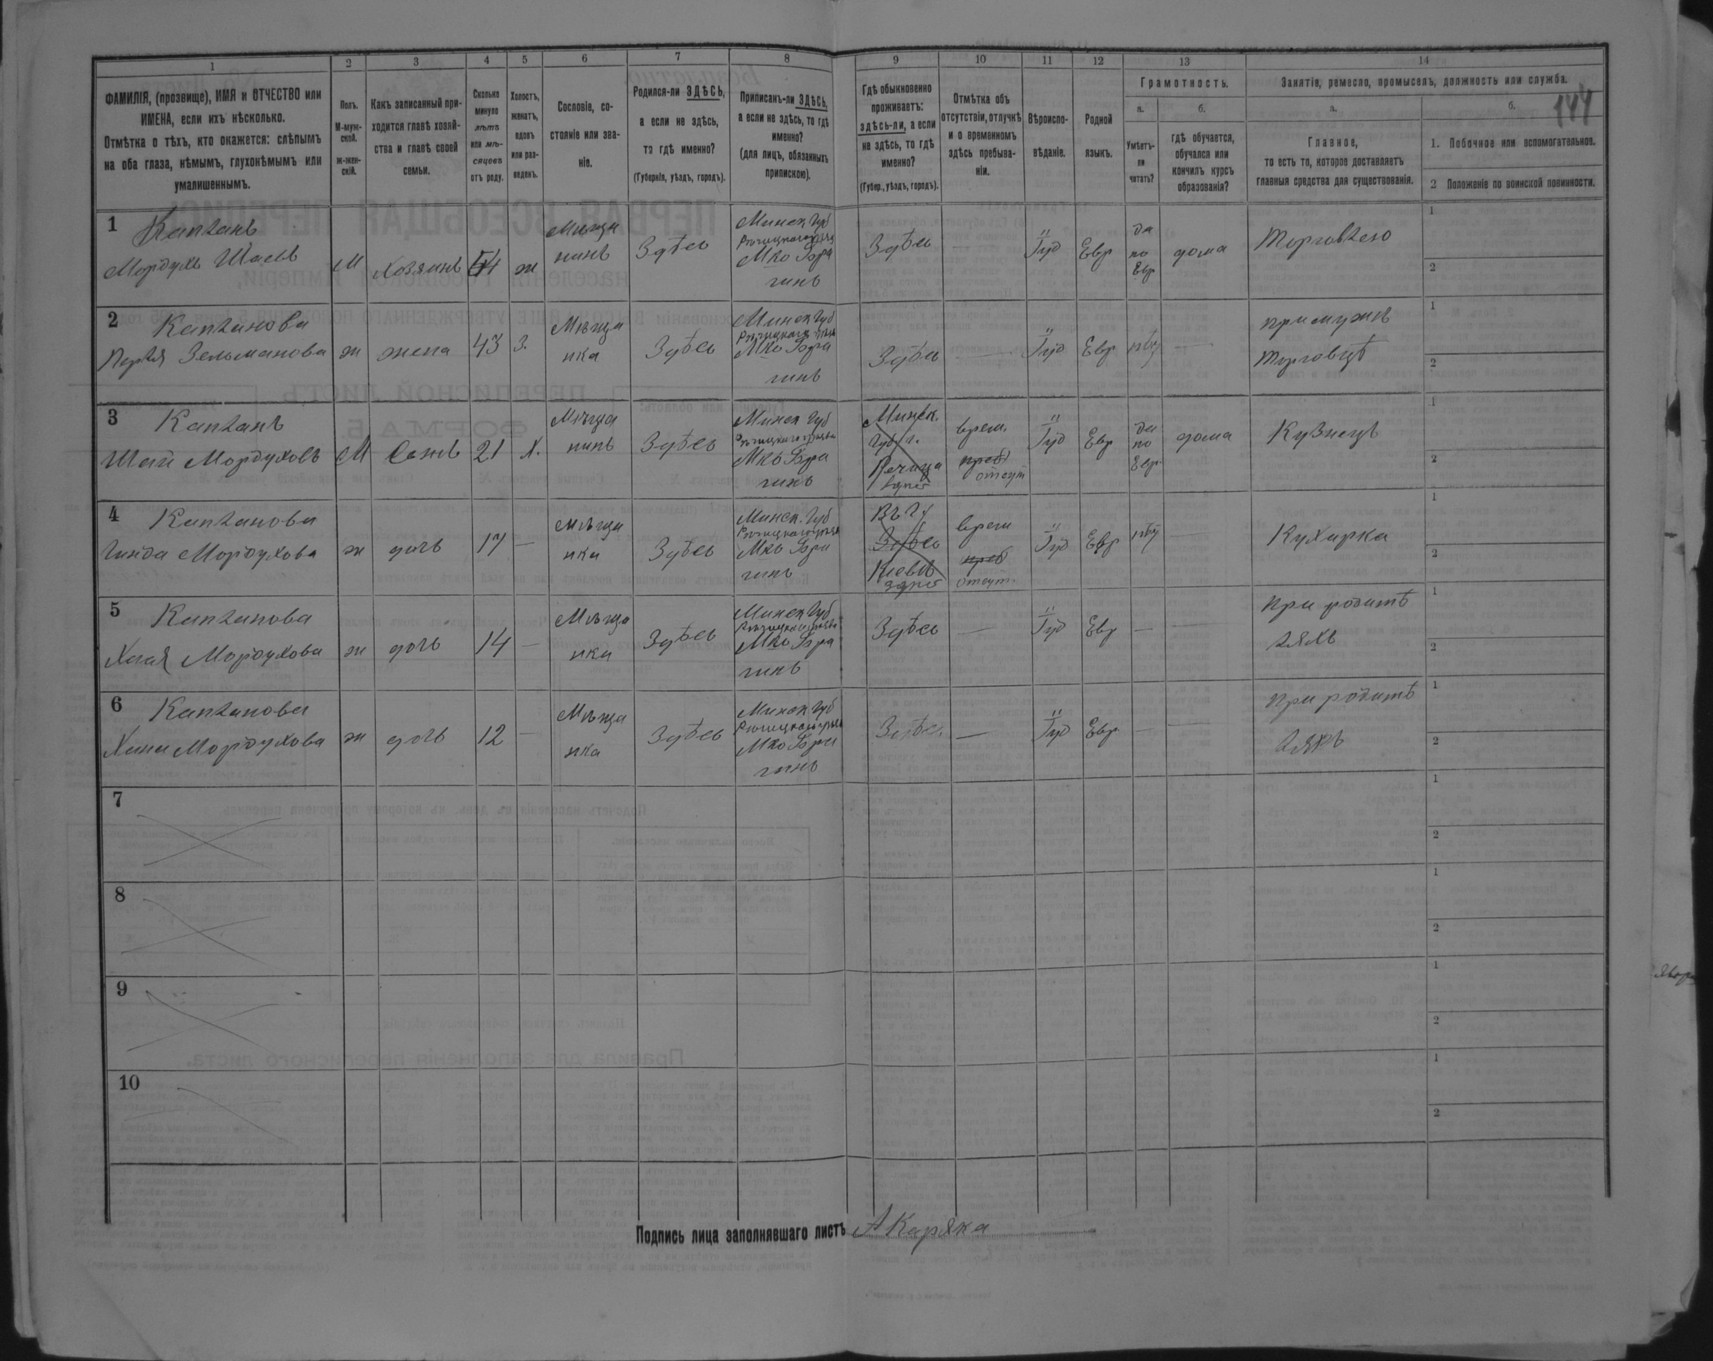 1 2 3 4 5 6 7 8 9 10 11 12 13 14
144
ФАМИЛІЯ, (прозвище), ИМЯ и ОТЧЕСТВО или
ИМЕНА, если ихъ нѣсколько.
Отмѣтка о тѣхъ, кто окажется: слѣпымъ
на оба глаза, нѣмымъ, глухонѣмымъ или
умалишеннымъ.
Полъ.
М-муж-
ской.
Ж-жен-
скій.
Какъ записанный при-
ходится главѣ хозяй-
ства и главѣ своей
семьи.
Сколько
минуло
лѣтъ
или мѣ-
сяцевъ
отъ роду.
Холостъ,
женатъ,
вдовъ
или раз-
веденъ.
Сословіе, со-
стояніе или зва-
ніе.
Родился-ли ЗДѢСЬ,
а если не здѣсь,
то гдѣ именно?
(Губернія, уѣздъ, городъ).
Приписанъ-ли ЗДѢСЬ,
а если не здѣсь, то гдѣ
именно?
(для лицъ, обязанныхъ
припискою).
Гдѣ обыкновенно
проживаетъ:
здѣсь-ли, а если
не здѣсь, то гдѣ
именно?
(Губер., уѣздъ, городъ).
Отмѣтка объ
отсутствіи, отлучкѣ
и о временномъ
здѣсь пребыва-
ніи.
Вѣроиспо-
вѣданіе.
Родной
языкъ.
Грамотность.
а.
Умѣетъ-
ли
читать?
б.
гдѣ обучается,
обучался или
кончилъ курсъ
образованія?
Занятіе, ремесло, промыселъ, должность или служба.
а.
Главное,
то есть то, которое доставляетъ
главныя средства для существованія.
б.
1. Побочное или вспомогательное.
2 Положеніе по воинской повинности.
1
Капланъ
Мордухъ Шаевъ
М
Хозяинъ
ж
Мѣща
нинъ
Здѣсь
Минск Губ
Рѣчицкаго уѣзда
Мко Бра
гинъ
Здѣсь
—
Іуд
Евр
да
по
Евр
дома
Торговлею
1
2
2
Капланова
Зельманова
ж
жена
43
З.
Мѣща
нка
Здѣсь
Минск Губ
Рѣчицкаго уѣзда
Мко Бра
гинъ
Здѣсь
—
Іуд
Евр
нѣт
—
при мужѣ
Торговцѣ
1
2
3
Капланъ
Шая Мордуховъ
М
Сынъ
21
Х.
Мѣща
нинъ
Здѣсь
Минск Губ
Рѣчицкаго уѣзда
Мко Бра
гинъ
Минск.
Губ. г.
Речица
здѣсь
врем.
преб
отсут
Іуд
Евр
да
по
Евр
дома
Кузнецъ
1
2
4
Капланова
Гинда Мордухова
ж
дочь
17
—
Мѣща
нка
Здѣсь
Минск. Губ
Рѣчицкаго уѣзда
Мко Бра
гинъ
Здѣсь
Кіевъ
здѣсь
врем
преб
отсут.
Іуд
Евр
нѣт
—
Кухарка
1
2
5
Капланова
Хая Мордухова
ж
дочь
14
—
Мѣща
нка
Здѣсь
Минск Губ
Рѣчицкаго уѣзда
Мко Бра
гинъ
Здѣсь
—
Іуд
Евр
—
—
При родите
ляхъ
1
2
6
Капланова
Хана Мордухова
ж
дочь
12
—
Мѣща
нка
Здѣсь
Минск Губ
Рѣчицкаго уѣзда
Мко Бра
гинъ
Здѣсь
—
Іуд
Евр
—
—
При родите
ляхъ
1
2
7
1
2
8
1
2
9
1
2
10
1
2
Подпись лица заполнявшаго листъ А Каряка